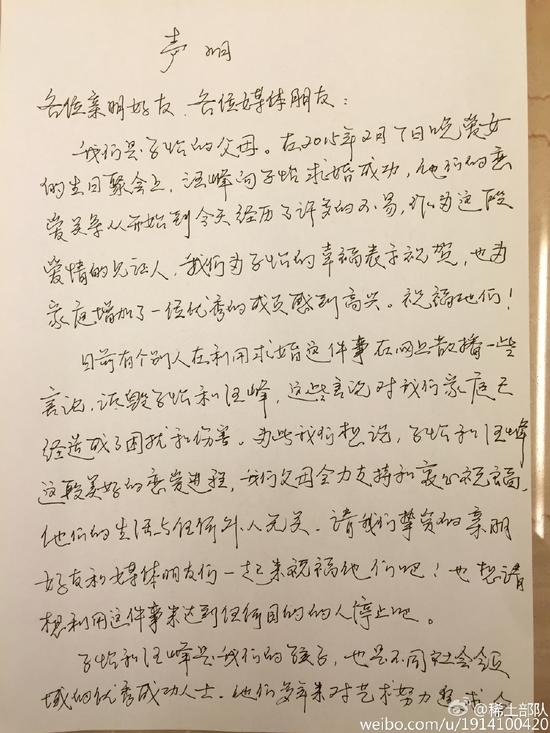 声明
各位亲朋好友、各位媒体朋友：
我们是子怡的父母。在2015年2月7日晚爱女
的生日聚会上，汪峰向子怡求婚成功，他们的恋
爱关系从开始到今天经历了许多的不易，作为这段
爱情的见证人，我们为子怡的幸福表示祝贺，也为
家庭增加了一位优秀的成员感到高兴。祝福他们！
目前有个别人在利用求婚这件事在网上散播一些
言论，诋毁子怡和汪峰，这些言论对我们家庭已
经造成了困扰和伤害。为此我们想说，子怡和汪峰
这段美好的恋爱进程，我们父母全力支持和衷心祝福，
他们的生活与任何外人无关。请我们挚爱的亲朋
好友和媒体朋友们一起来祝福他们吧！也想请
想利用这件事来达到任何目的的人停止吧。
子怡和汪峰是我们的孩子，也是不同社会领
域的优秀成功人士。他们多年来对艺术努力追求
@稀土部队
weibo.com/u/1914100420